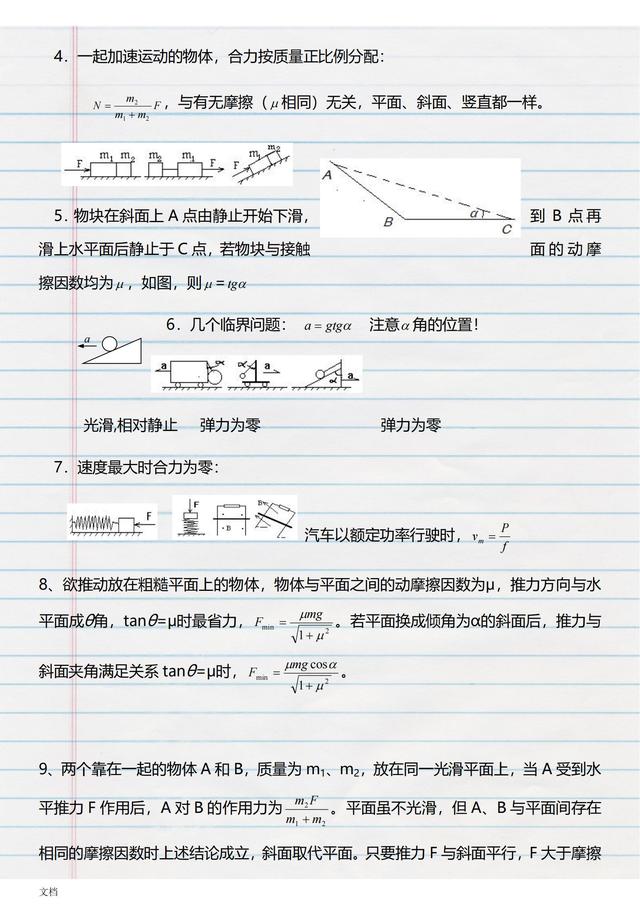 4．一起加速运动的物体，合力按质量正比例分配：
N = m₂/(m₁ + m₂) F，与有无摩擦（μ相同）无关，平面、斜面、竖直都一样。
F m₁ m₂ m₂ m₁ F F m₁ m₂
A B C α
5．物块在斜面上 A 点由静止开始下滑，到 B 点再
滑上水平面后静止于 C 点，若物块与接触面的动摩
擦因数均为μ，如图，则μ = tgα
6．几个临界问题： a = gtgα 注意α角的位置！
a a α α a α a
光滑,相对静止 弹力为零 弹力为零
7．速度最大时合力为零：
F F B B
汽车以额定功率行驶时，vₘ = P/f
8、欲推动放在粗糙平面上的物体，物体与平面之间的动摩擦因数为μ，推力方向与水
平面成θ角，tanθ=μ时最省力，Fmin = μmg/√(1+μ²)。若平面换成倾角为α的斜面后，推力与
斜面夹角满足关系 tanθ=μ时，Fmin = μmg cosα/√(1+μ²)。
9、两个靠在一起的物体 A 和 B，质量为 m₁、m₂，放在同一光滑平面上，当 A 受到水
平推力 F 作用后，A 对 B 的作用力为 m₂F/(m₁ + m₂)。平面虽不光滑，但 A、B 与平面间存在
相同的摩擦因数时上述结论成立，斜面取代平面。只要推力 F 与斜面平行，F 大于摩擦
文档